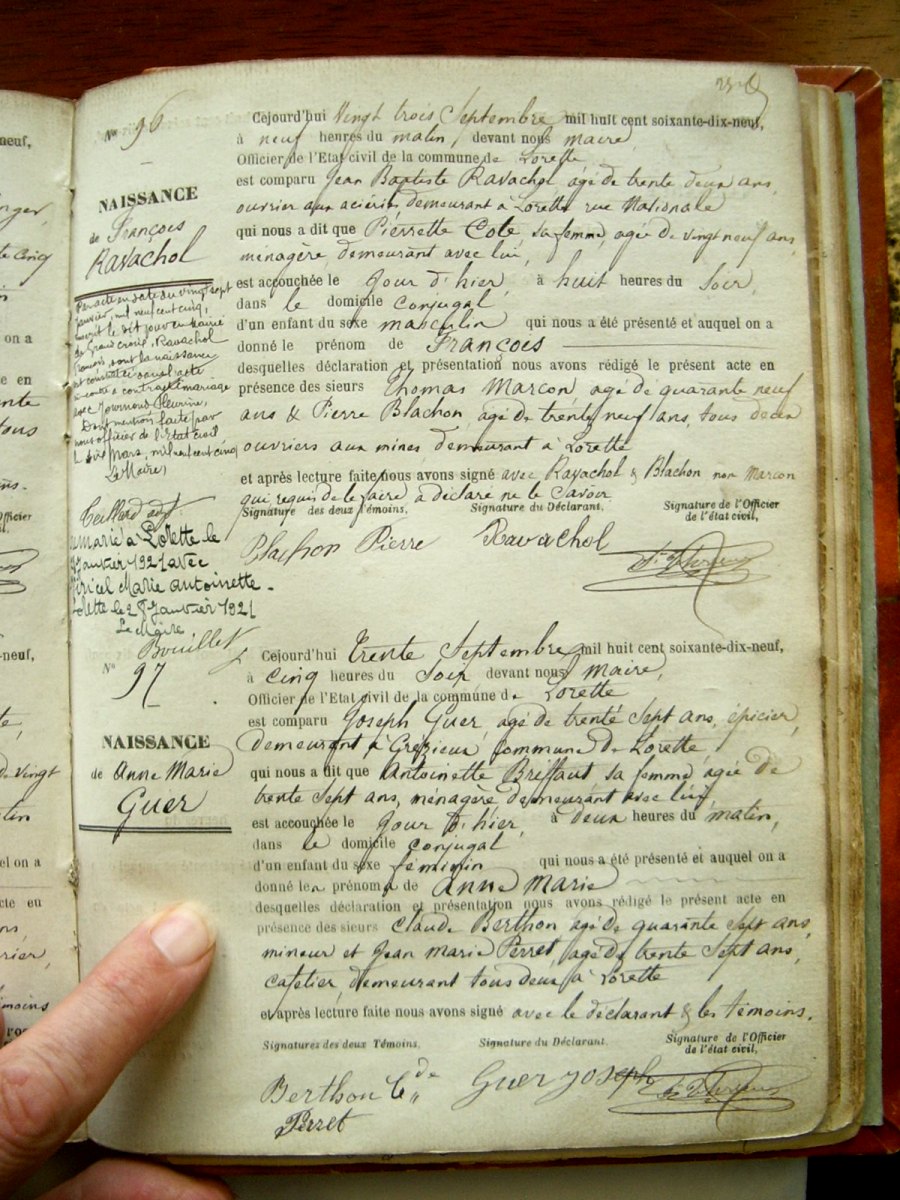 neuf,
nger,
te cinq
on a
e en
nte
tous
ns.
Officier
il,
neuf,
te,
de vingt
tin
uel on a
cte en
ns,
rier,
moins
Nos 96
NAISSANCE
de François
Ravachol
Par acte en date du vingt sept
janvier, mil neuf cent cinq,
inscrit le dit jour en mairie
de Grand'croix, Ravachol
François, dont la naissance
est constatée au acte
contracté mariage
avec Fleurine,
Dont mention faite par
nous officier de l'état civil
le six Mars, mil neuf cent cinq
Le Maire,
marié à Lorette le
Janvier 1921 avec
Marie Antoinette.
Lorette le 28 Janvier 1921
Le Maire
Bouillet
Cejourd'hui Vingt trois Septembre mil huit cent soixante-dix-neuf,
à neuf heures du matin, devant nous maire,
Officier de l'Etat civil de la commune de Lorette
est comparu Jean Baptiste Ravachol, agé de trente deux ans,
ouvrier aux aciéries, demeurant à Lorette rue Nationale
qui nous a dit que Pierrette Cote, sa femme, agée de vingt neuf ans
ménagère, demeurant avec lui,
est accouchée le jour d'hier, à huit heures du soir,
dans le domicile conjugal
d'un enfant du sexe masculin qui nous a été présenté et auquel on a
donné le prénom de François
desquelles déclaration et présentation nous avons rédigé le présent acte en
présence des sieurs Thomas Marcon, agé de quarante neuf
ans & Pierre Blachon, agé de trente neuf ans, tous deux
ouvriers aux mines, demeurant à Lorette
et après lecture faite nous avons signé avec Ravachol & Blachon non Marcon
qui requis de le faire à déclaré ne le Savoir
Signature des deux Témoins, Signature du Déclarant. Signature de l'Officier
de l'état civil,
Blachon Pierre Ravachol
No 97
NAISSANCE
de Anne Marie
Guer
Cejourd'hui trente Septembre mil huit cent soixante-dix-neuf,
à cinq heures du soir devant nous maire,
Officier de l'Etat civil de la commune de Lorette
est comparu Joseph Guer, agé de trente sept ans, épicier,
demeurant à Grézieux, commune de Lorette,
qui nous a dit que Antoinette Briffaut, sa femme, agée de
trente sept ans, ménagère, demeurant avec lui,
est accouchée le jour d'hier, à deux heures du matin,
dans le domicile conjugal
d'un enfant du sexe féminin qui nous a été présenté et auquel on a
donné les prénoms de Anne Marie
desquelles déclaration et présentation nous avons rédigé le présent acte en
présence des sieurs Claude Berthon agé de quarante sept ans,
mineur et Jean Marie Perret, agé de trente sept ans,
cafetier, demeurant tous deux à Lorette
et après lecture faite nous avons signé avec le déclarant & les témoins.
Signatures des deux Témoins, Signature du Déclarant. Signature de l'Officier
de l'état civil,
Berthon Cde Guer joseph
Perret